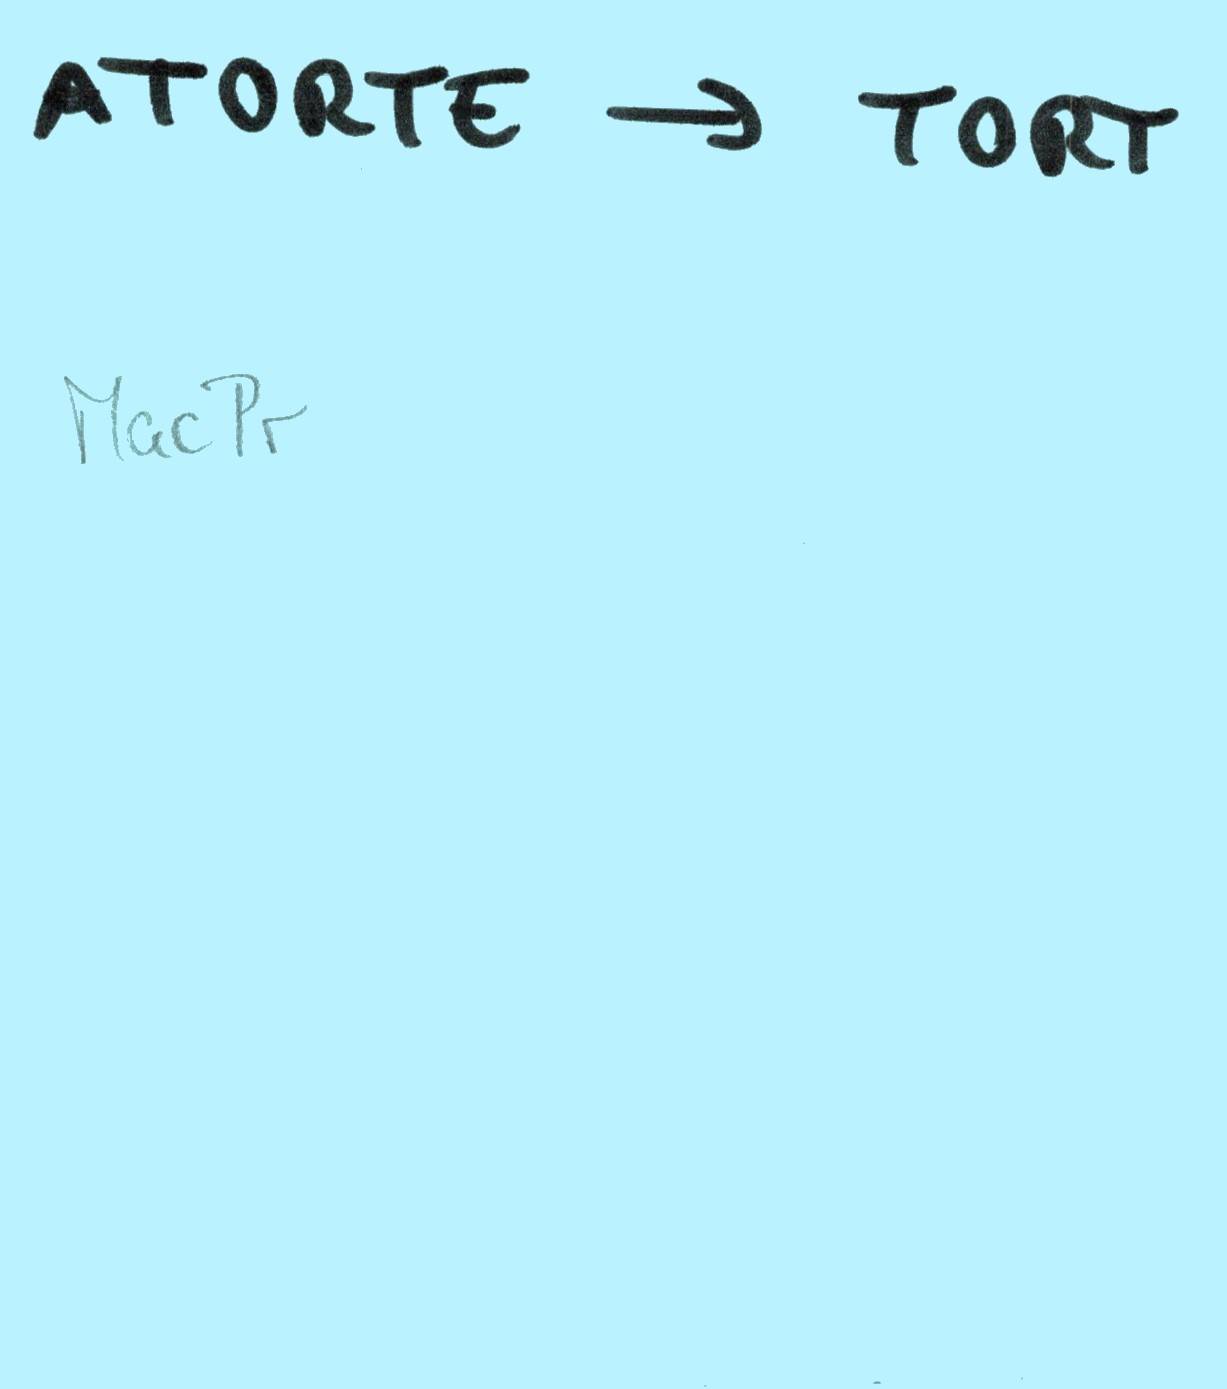 ATORTE → TORT
MacPr